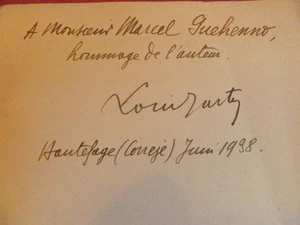 A Monsieur Marcel Guehenno,
hommage de l'auteur.
Hautefage (Corrèze) Juin 1938.